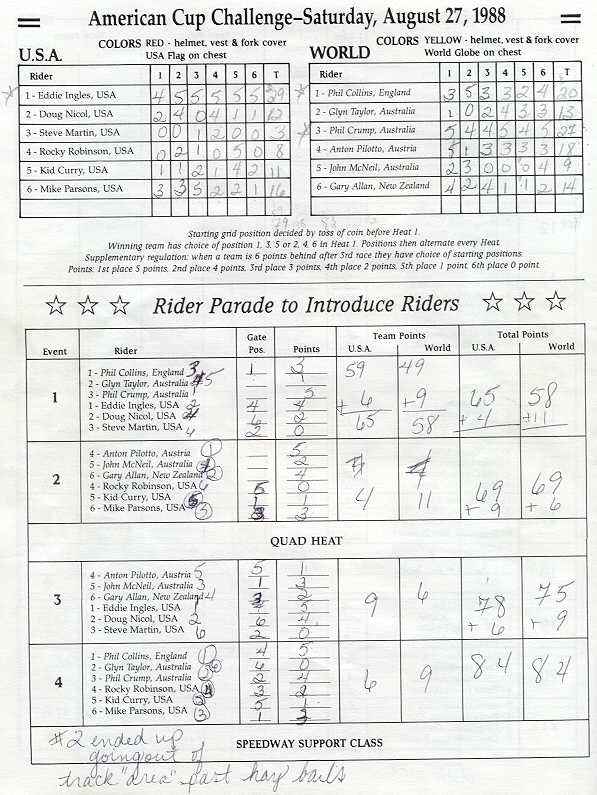 American Cup Challenge–Saturday, August 27, 1988
U.S.A.
COLORS RED - helmet, vest & fork cover
USA Flag on chest
Rider 1 2 3 4 5 6 T
1 - Eddie Ingles, USA 4 5 5 5 5 5 29
2 - Doug Nicol, USA 2 4 0 4 1 1 12
3 - Steve Martin, USA 0 0 1 2 0 0 3
4 - Rocky Robinson, USA 0 2 1 0 5 0 8
5 - Kid Curry, USA 1 1 2 1 4 2 11
6 - Mike Parsons, USA 3 3 5 2 2 1 16
WORLD
COLORS YELLOW - helmet, vest & fork cover
World Globe on chest
Rider 1 2 3 4 5 6 T
1 - Phil Collins, England 3 5 3 3 2 4 20
2 - Glyn Taylor, Australia 1 0 2 4 3 3 13
3 - Phil Crump, Australia 5 4 4 5 4 5 27
4 - Anton Pilotto, Austria 5 1 3 3 3 3 18
5 - John McNeil, Australia 2 3 0 0 0 4 9
6 - Gary Allan, New Zealand 4 2 4 1 1 2 14
Starting grid position decided by toss of coin before Heat 1.
Winning team has choice of position 1, 3, 5 or 2, 4, 6 in Heat 1. Positions then alternate every Heat.
Supplementary regulation: when a team is 6 points behind after 3rd race they have choice of starting positions.
Points: 1st place 5 points, 2nd place 4 points, 3rd place 3 points, 4th place 2 points, 5th place 1 point, 6th place 0 point.
Rider Parade to Introduce Riders
Event Rider Gate Pos. Points Team Points U.S.A. World Total Points U.S.A. World
1
1 - Phil Collins, England 3 1 3 59 49
2 - Glyn Taylor, Australia 5 1
3 - Phil Crump, Australia 1 5 + 6 + 9 65 58
1 - Eddie Ingles, USA 2 4 4 65 58 + 4 + 11
2 - Doug Nicol, USA 4 6 2
3 - Steve Martin, USA 6 2 0
2
4 - Anton Pilotto, Austria 1 5
5 - John McNeil, Australia 2
6 - Gary Allan, New Zealand 2 4
4 - Rocky Robinson, USA 6 5 0 4 11 69 69
5 - Kid Curry, USA 5 1 1 + 9 + 6
6 - Mike Parsons, USA 3 3 3
QUAD HEAT
3
4 - Anton Pilotto, Austria 5 5 1
5 - John McNeil, Australia 3 1 3
6 - Gary Allan, New Zealand 4 3 2 9 6 78 75
1 - Eddie Ingles, USA 1 5 + 6 + 9
2 - Doug Nicol, USA 2 6 4
3 - Steve Martin, USA 6 2 0
4
1 - Phil Collins, England 1 4 5
2 - Glyn Taylor, Australia 6 6 0
3 - Phil Crump, Australia 2 2 4 6 9 84 84
4 - Rocky Robinson, USA 4 3 2
5 - Kid Curry, USA 5 5 1
6 - Mike Parsons, USA 3 1 3
SPEEDWAY SUPPORT CLASS
#2 ended up
going out of
track "area" - past hay bails